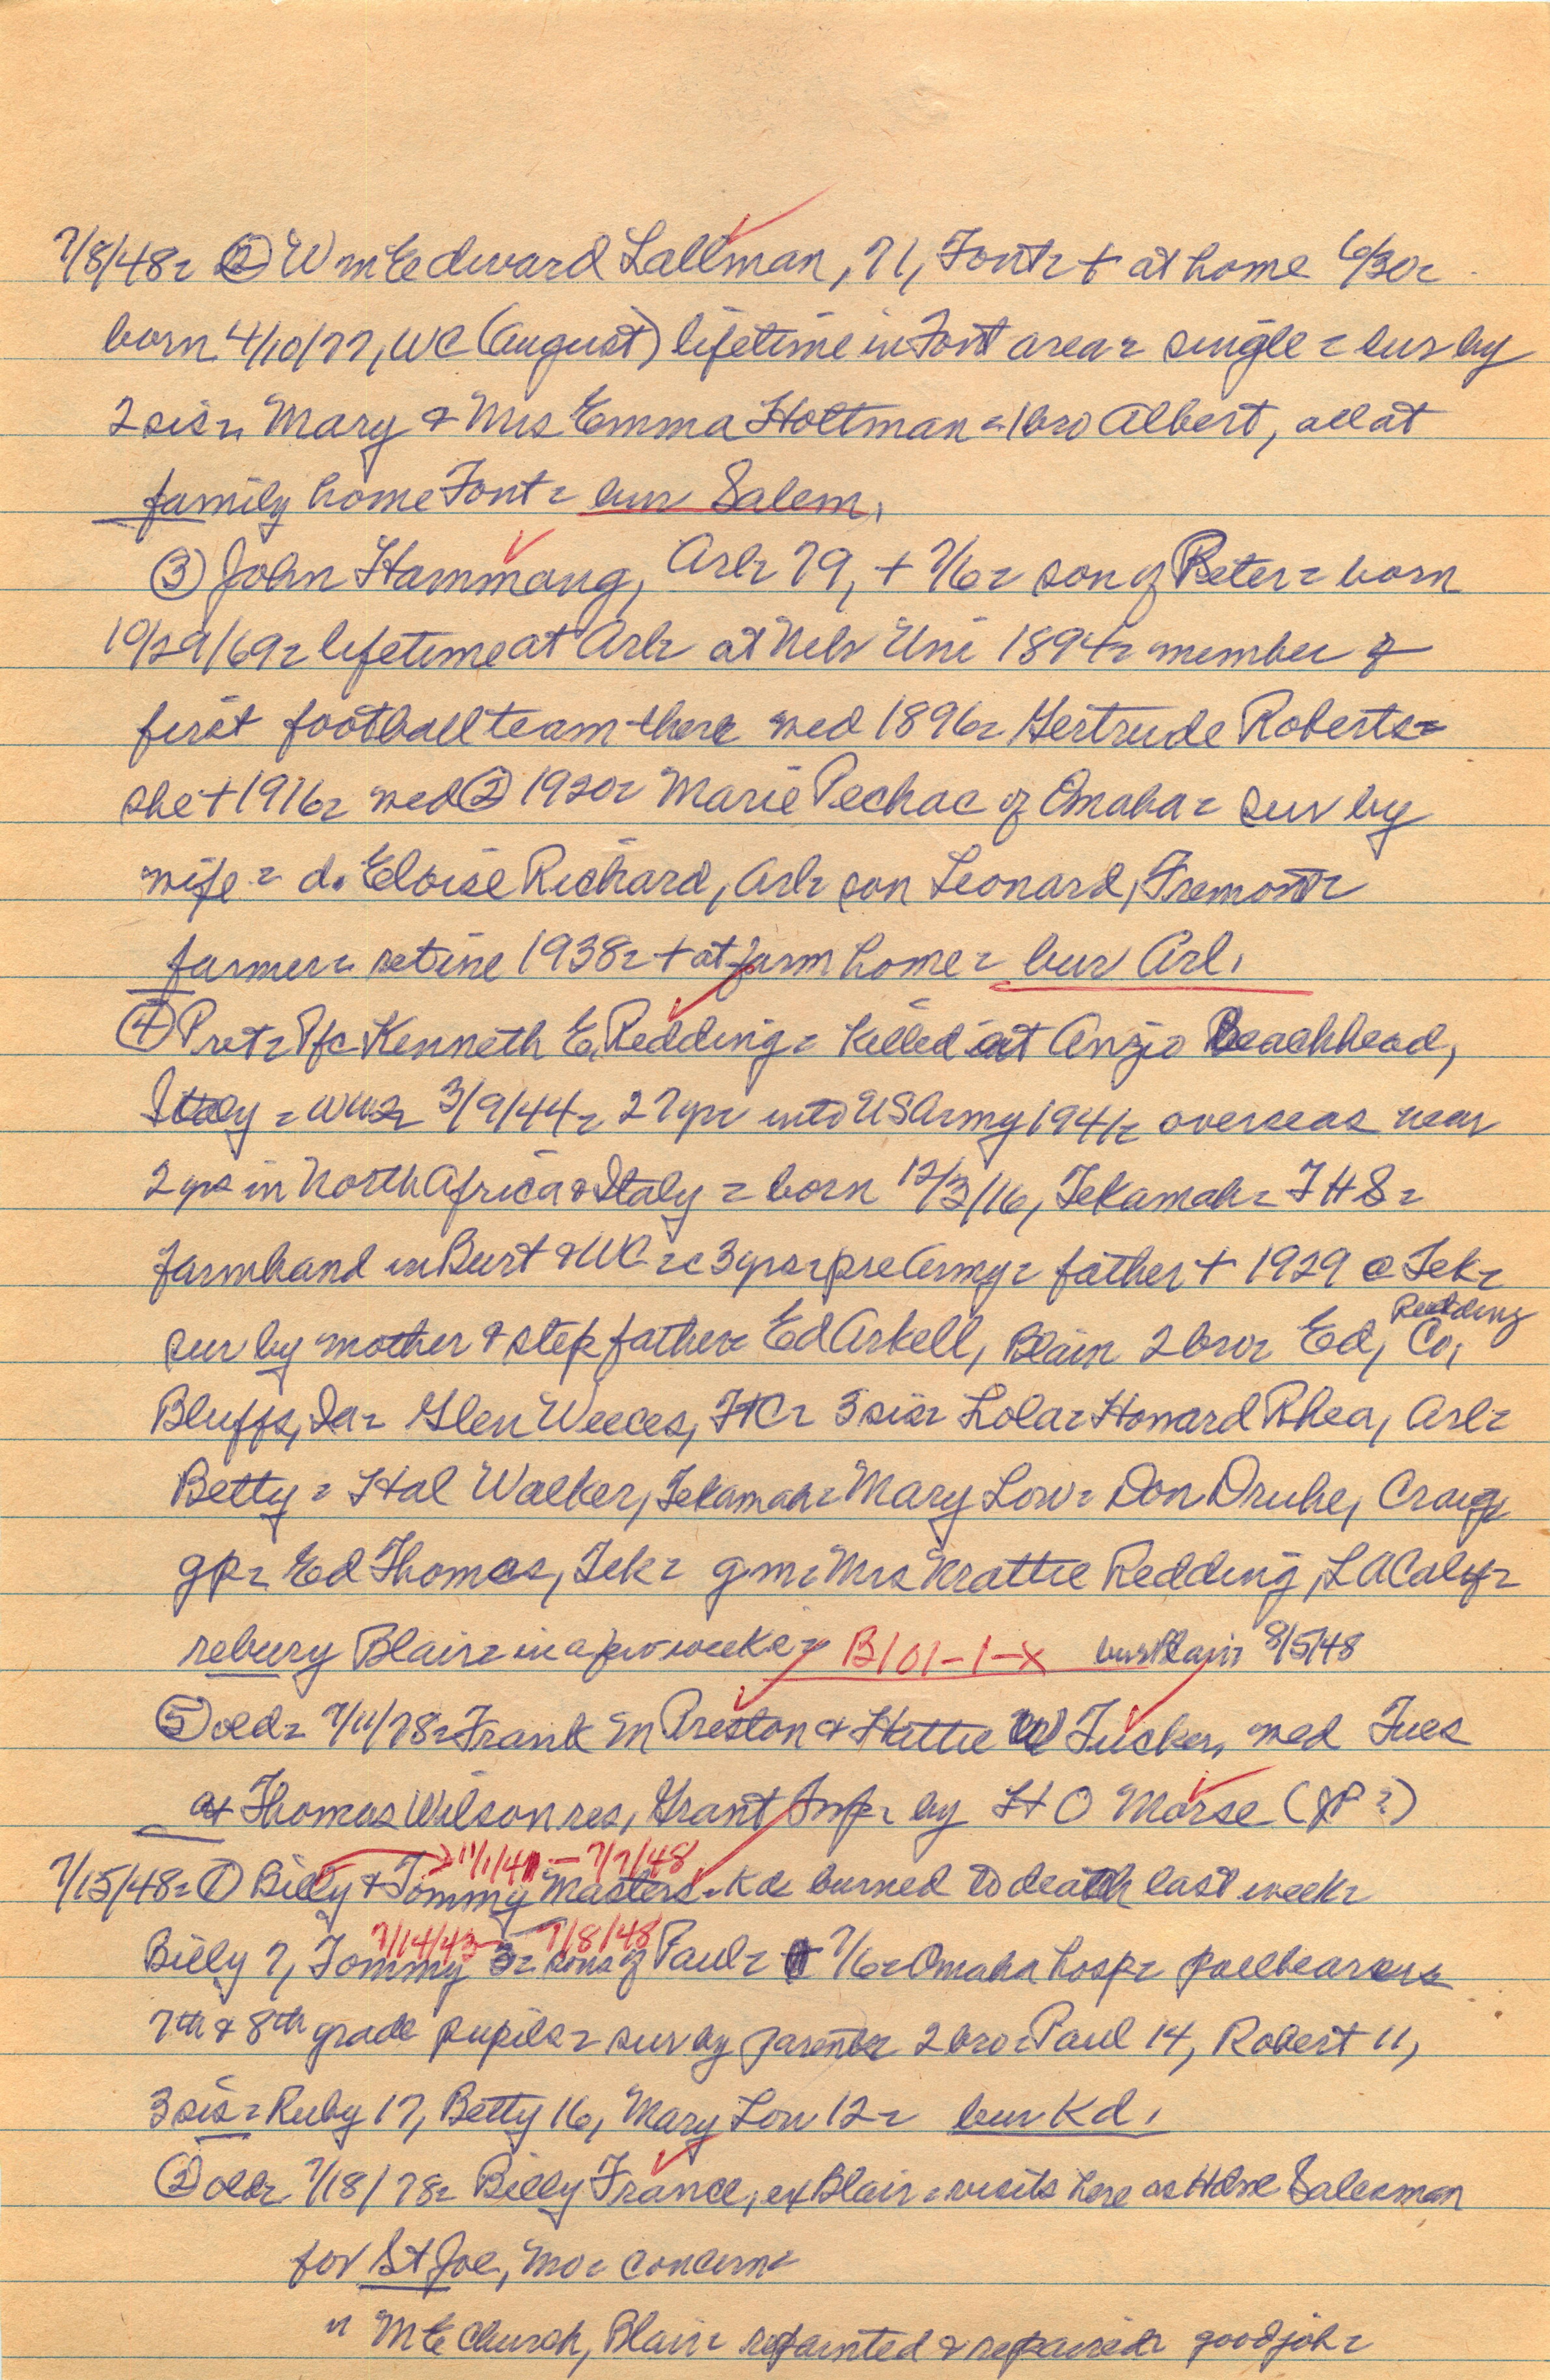 7/8/48 = ② Wm Edward Lallman, 71, Font = + at home 6/30 =
born 4/10/77, WC (August) lifetime in Font area = single = sur by
2 sis = Mary & Mrs Emma Holtman = 1 bro Albert, all at
family home Font = bur Salem.
③ John Hammang, Arl = 79, + 7/6 = son of Peter = born
10/29/69 = lifetime at Arl = at Neb Uni 1894 = member of
first football team there wed 1896 = Gertrude Roberts =
she + 1916 = wed ② 1920 = Marie Pechac of Omaha = sur by
wife = d. Eloise Richard, Arl = son Leonard, Fremont =
farmer = retire 1938 = + at farm home = bur Arl.
④ Pvt = Pfc Kenneth E. Redding = killed at Anzio Beachhead,
Italy = WW2 3/9/44 = 27 yr = into US Army 1941 = overseas near
2 yrs in North Africa & Italy = born 12/3/16, Tekamah = THS =
farmhand in Burt & WC = c 3 yrs = pre Army = father + 1929 @ Tek =
Redding
sur by mother & step father = Ed Arkell, Blair 2 bro = Ed, Co.
Bluffs, Ia = Glen Weeces, FtC = 3 sis = Lola = Howard Rhea, Arl =
Betty = Hal Walker, Tekamah = Mary Lou = Don Druhe, Craig =
gp = Ed Thomas, Tek = gm = Mrs Krattie Redding, LA Calif =
rebury Blair = in a few weeks = B101-1-X bur Blair = 8/5/48
⑤ old = 7/11/78 = Frank M Preston & Hattie W Tucker, wed Tues
at Thomas Wilson res, Grant Twp = by H O Morse (JP?)
11/1/41 - 7/7/48
7/15/48 = ① Billy & Tommy Masters = Kd burned to death last week =
7/14/43 - 7/8/48
Billy 7, Tommy 3 = sons of Paul = + 7/6 = Omaha hosp = pallbearers
7th & 8th grade pupils = sur by parents = 2 bro = Paul 14, Robert 11,
3 sis = Ruby 17, Betty 16, Mary Lou 12 = bur Kd.
② old = 7/18/78 = Billy France, ex Blair = visits here as Hdwe Salesman
for St Joe, Mo = concern =
" ME Church, Blair = repainted & repaired = good job =